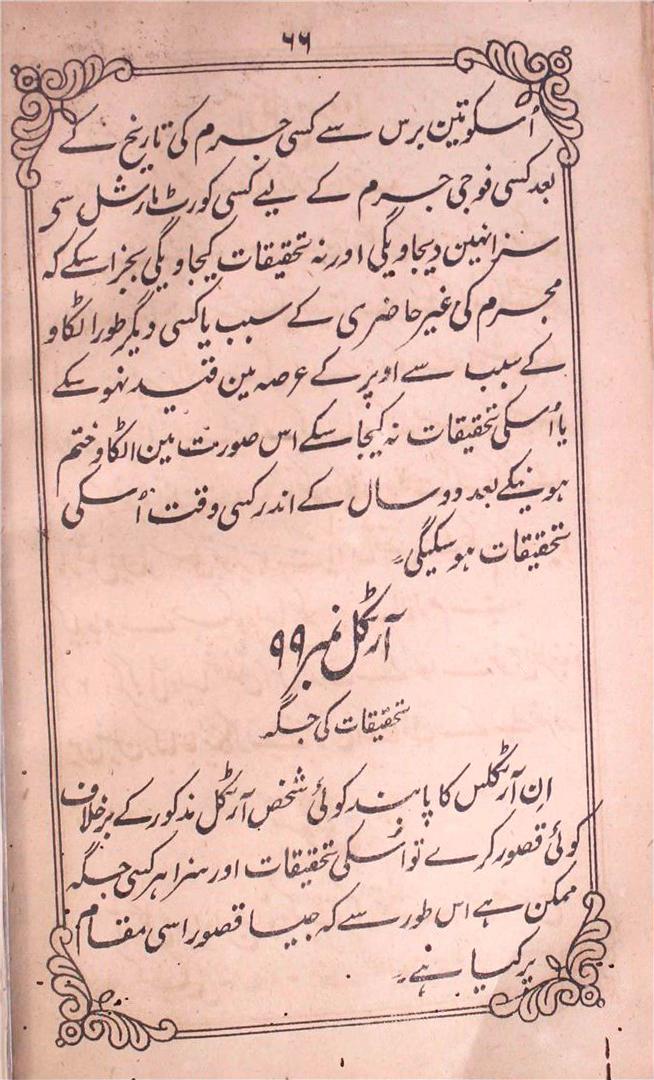 ۶۶
اُسکو تین برس سے کسی جرم کی تاریخ کے
بعد کسی فوجی جرم کے لیے کسی کورٹ مارشل سی
سزا نہین دیجاویگی اور نہ تحقیقات کیجاویگی بجز اسکے کہ
مجرم کی غیر حاضری کے سبب یا کسی دیگر طور اٹکاو
کے سبب سے اوپر کے عرصہ مین قید نہو سکے
یا اُسکی تحقیقات نہ کیجا سکے اس صورت مین اٹکاو ختم
ہونیکے بعد دو سال کے اندر کسی وقت اُسکی
تحقیقات ہو سکیگی۔
آرٹکل نمبر ۹۹
تحقیقات کی جگہ
اِن آرٹکلس کا پابند کوئی شخص آرٹکل مذکور کے برخلاف
کوئی قصور کرے تو اُسکی تحقیقات اور سزا ہر کسی جگہ
ممکن ہے اس طور سے کہ جیسا قصور اسی مقام
پر کیا ہے۔